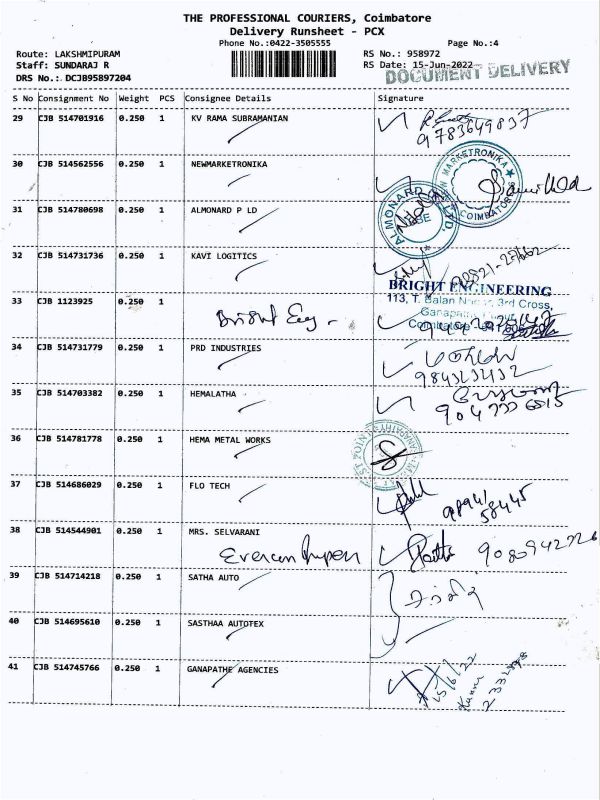 THE PROFESSIONAL COURIERS, Coimbatore
Delivery Runsheet - PCX
Phone No.:0422-3505555
Page No.:4
Route: LAKSHMIPURAM
RS No.: 958972
Staff: SUNDARAJ R
RS Date: 15-Jun-2022
DRS No.: DCJB95897204
DOCUMENT DELIVERY
S No Consignment No Weight PCS Consignee Details Signature
29 CJB 514701916 0.250 1 KV RAMA SUBRAMANIAN
9783649837
30 CJB 514562556 0.250 1 NEWMARKETRONIKA
MARKETRONIKA
COIMBATORE
31 CJB 514780698 0.250 1 ALMONARD P LD
ALMONARD
LTD.
32 CJB 514731736 0.250 1 KAVI LOGITICS
BRIGHT ENGINEERING
113, T. Balan Nagar, 3rd Cross,
33 CJB 1123925 0.250 1
Bright Eng -
Ganapathy
Coimbatore
34 CJB 514731779 0.250 1 PRD INDUSTRIES
35 CJB 514703382 0.250 1 HEMALATHA
36 CJB 514781778 0.250 1 HEMA METAL WORKS
37 CJB 514686029 0.250 1 FLO TECH
98941
58445
38 CJB 514544901 0.250 1 MRS. SELVARANI
9080942726
39 CJB 514714218 0.250 1 SATHA AUTO
40 CJB 514695610 0.250 1 SASTHAA AUTOTEX
41 CJB 514745766 0.250 1 GANAPATHE AGENCIES
15/6/22